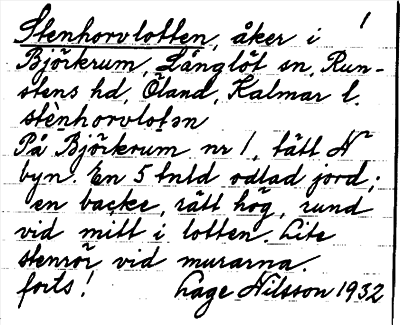 1
Stenhorvlotten, åker i
Björkrum, Långlöt sn, Run-
stens hd, Öland, Kalmar l.
stènhorvlotən
På Björkrum nr 1, tätt N
byn. En 5 tnld odlad jord;
en backe, rätt hög, rund
vid mitt i lotten. Lite
stenrör vid murarna.
forts! Lage Nilsson 1932